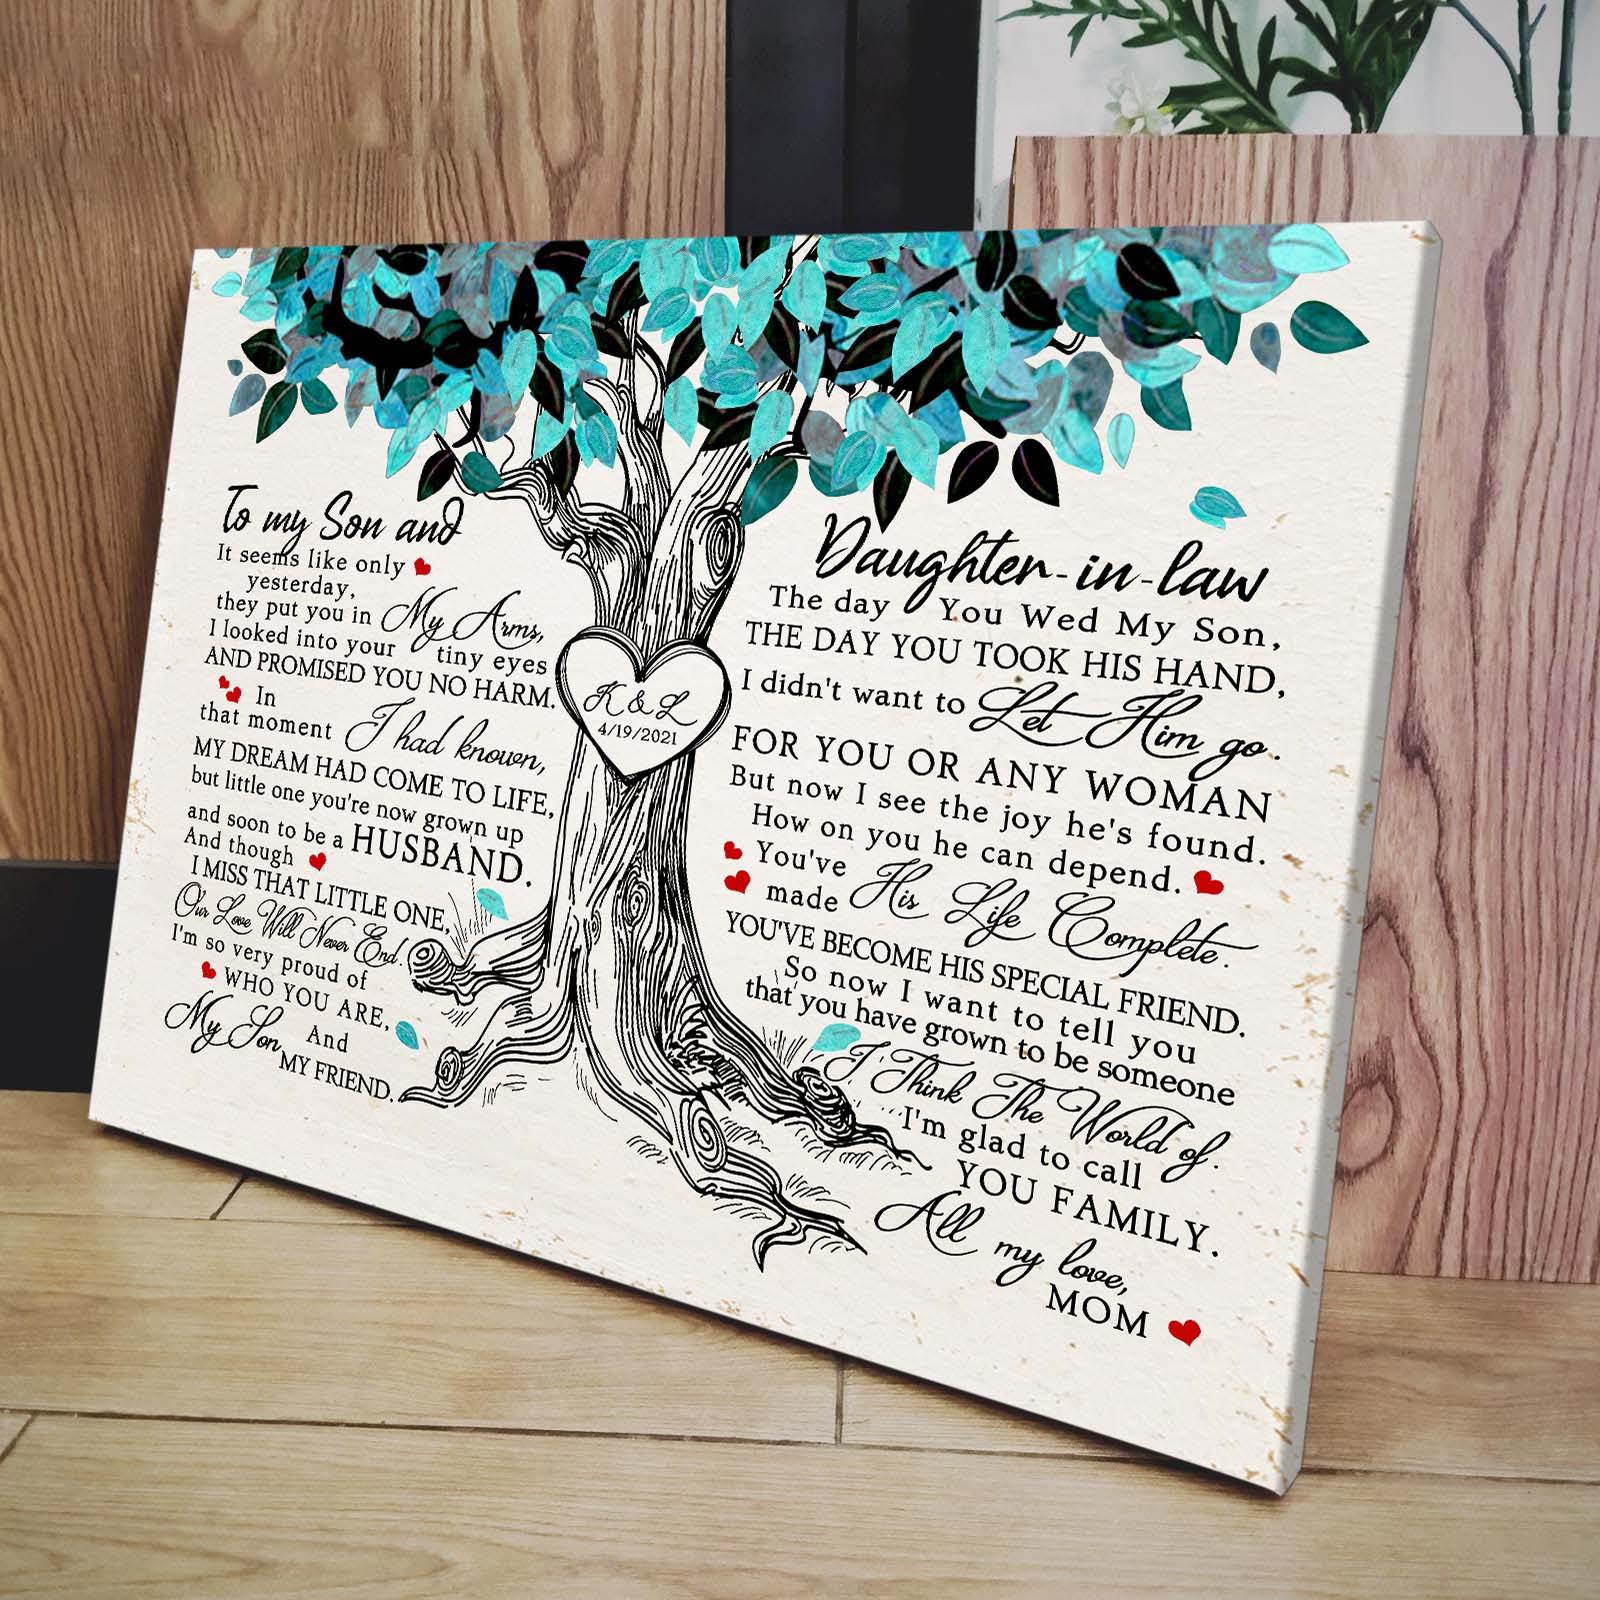 To my Son and
It seems like only
yesterday,
they put you in My Arms,
I looked into your tiny eyes
AND PROMISED YOU NO HARM.
In
that moment I had known,
MY DREAM HAD COME TO LIFE,
but little one you're now grown up
and soon to be a HUSBAND.
And though
I MISS THAT LITTLE ONE,
Our Love Will Never End.
I'm so very proud of
WHO YOU ARE,
And
My Son MY FRIEND.
K & L
4/19/2021
Daughter-in-law
The day You Wed My Son,
THE DAY YOU TOOK HIS HAND,
I didn't want to Let Him go.
FOR YOU OR ANY WOMAN
But now I see the joy he's found.
How on you he can depend.
You've
made His Life Complete.
YOU'VE BECOME HIS SPECIAL FRIEND.
So now I want to tell you
that you have grown to be someone
I Think The World of.
I'm glad to call
YOU FAMILY.
All my love,
MOM